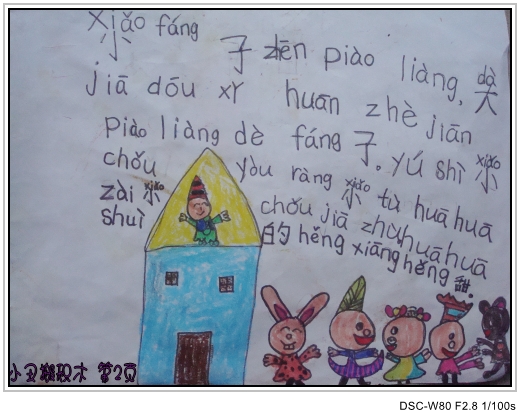 xiǎo fáng
小 子 zhēn piào liàng, dà 大
jiā dóu xǐ huān zhè jiān
piào liàng dè fáng 子。yú shì xiǎo 小
chǒu yòu ràng 小 xiǎo tù huā huā
zài 小 xiǎo chǒu jiā zhù, huā huā
shuì 的 hěng xiāng hěng 甜。
小丑搬积木 第2页
DSC-W80 F2.8 1/100s